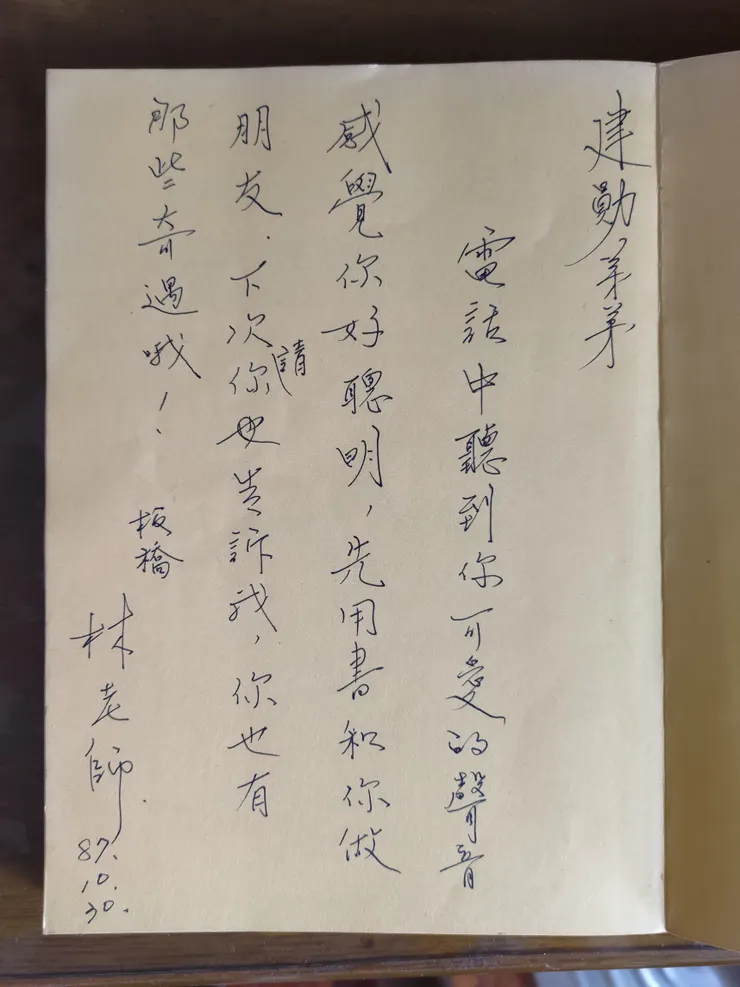 建勳弟弟
電話中聽到你可愛的聲音
感覺你好聰明,先用書和你做
朋友.下次你請也告訴我,你也有
那些奇遇哦!
板橋
林老師.
87.10.30.